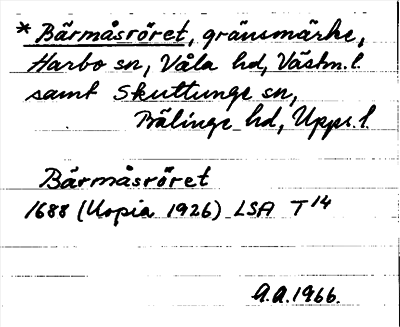 * Bärmåsröret, gränsmärke,
Harbo sn, Våla hd, Västm. l.
samt Skuttunge sn,
Bälinge hd, Upps. l.
Bärmåsröret
1688 (Kopia 1926) LSA T14
A.A. 1966.